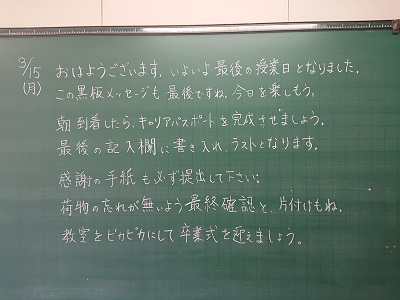 3/15
(月)
おはようございます。いよいよ最後の授業日となりました。
この黒板メッセージも最後ですね。今日を楽しもう。
朝到着したら、キャリアパスポートを完成させましょう。
最後の記入欄に書き入れ、ラストとなります。
感謝の手紙も必ず提出して下さい。
荷物の忘れが無いよう最終確認と、片付けもね。
教室をピカピカにして卒業式を迎えましょう。